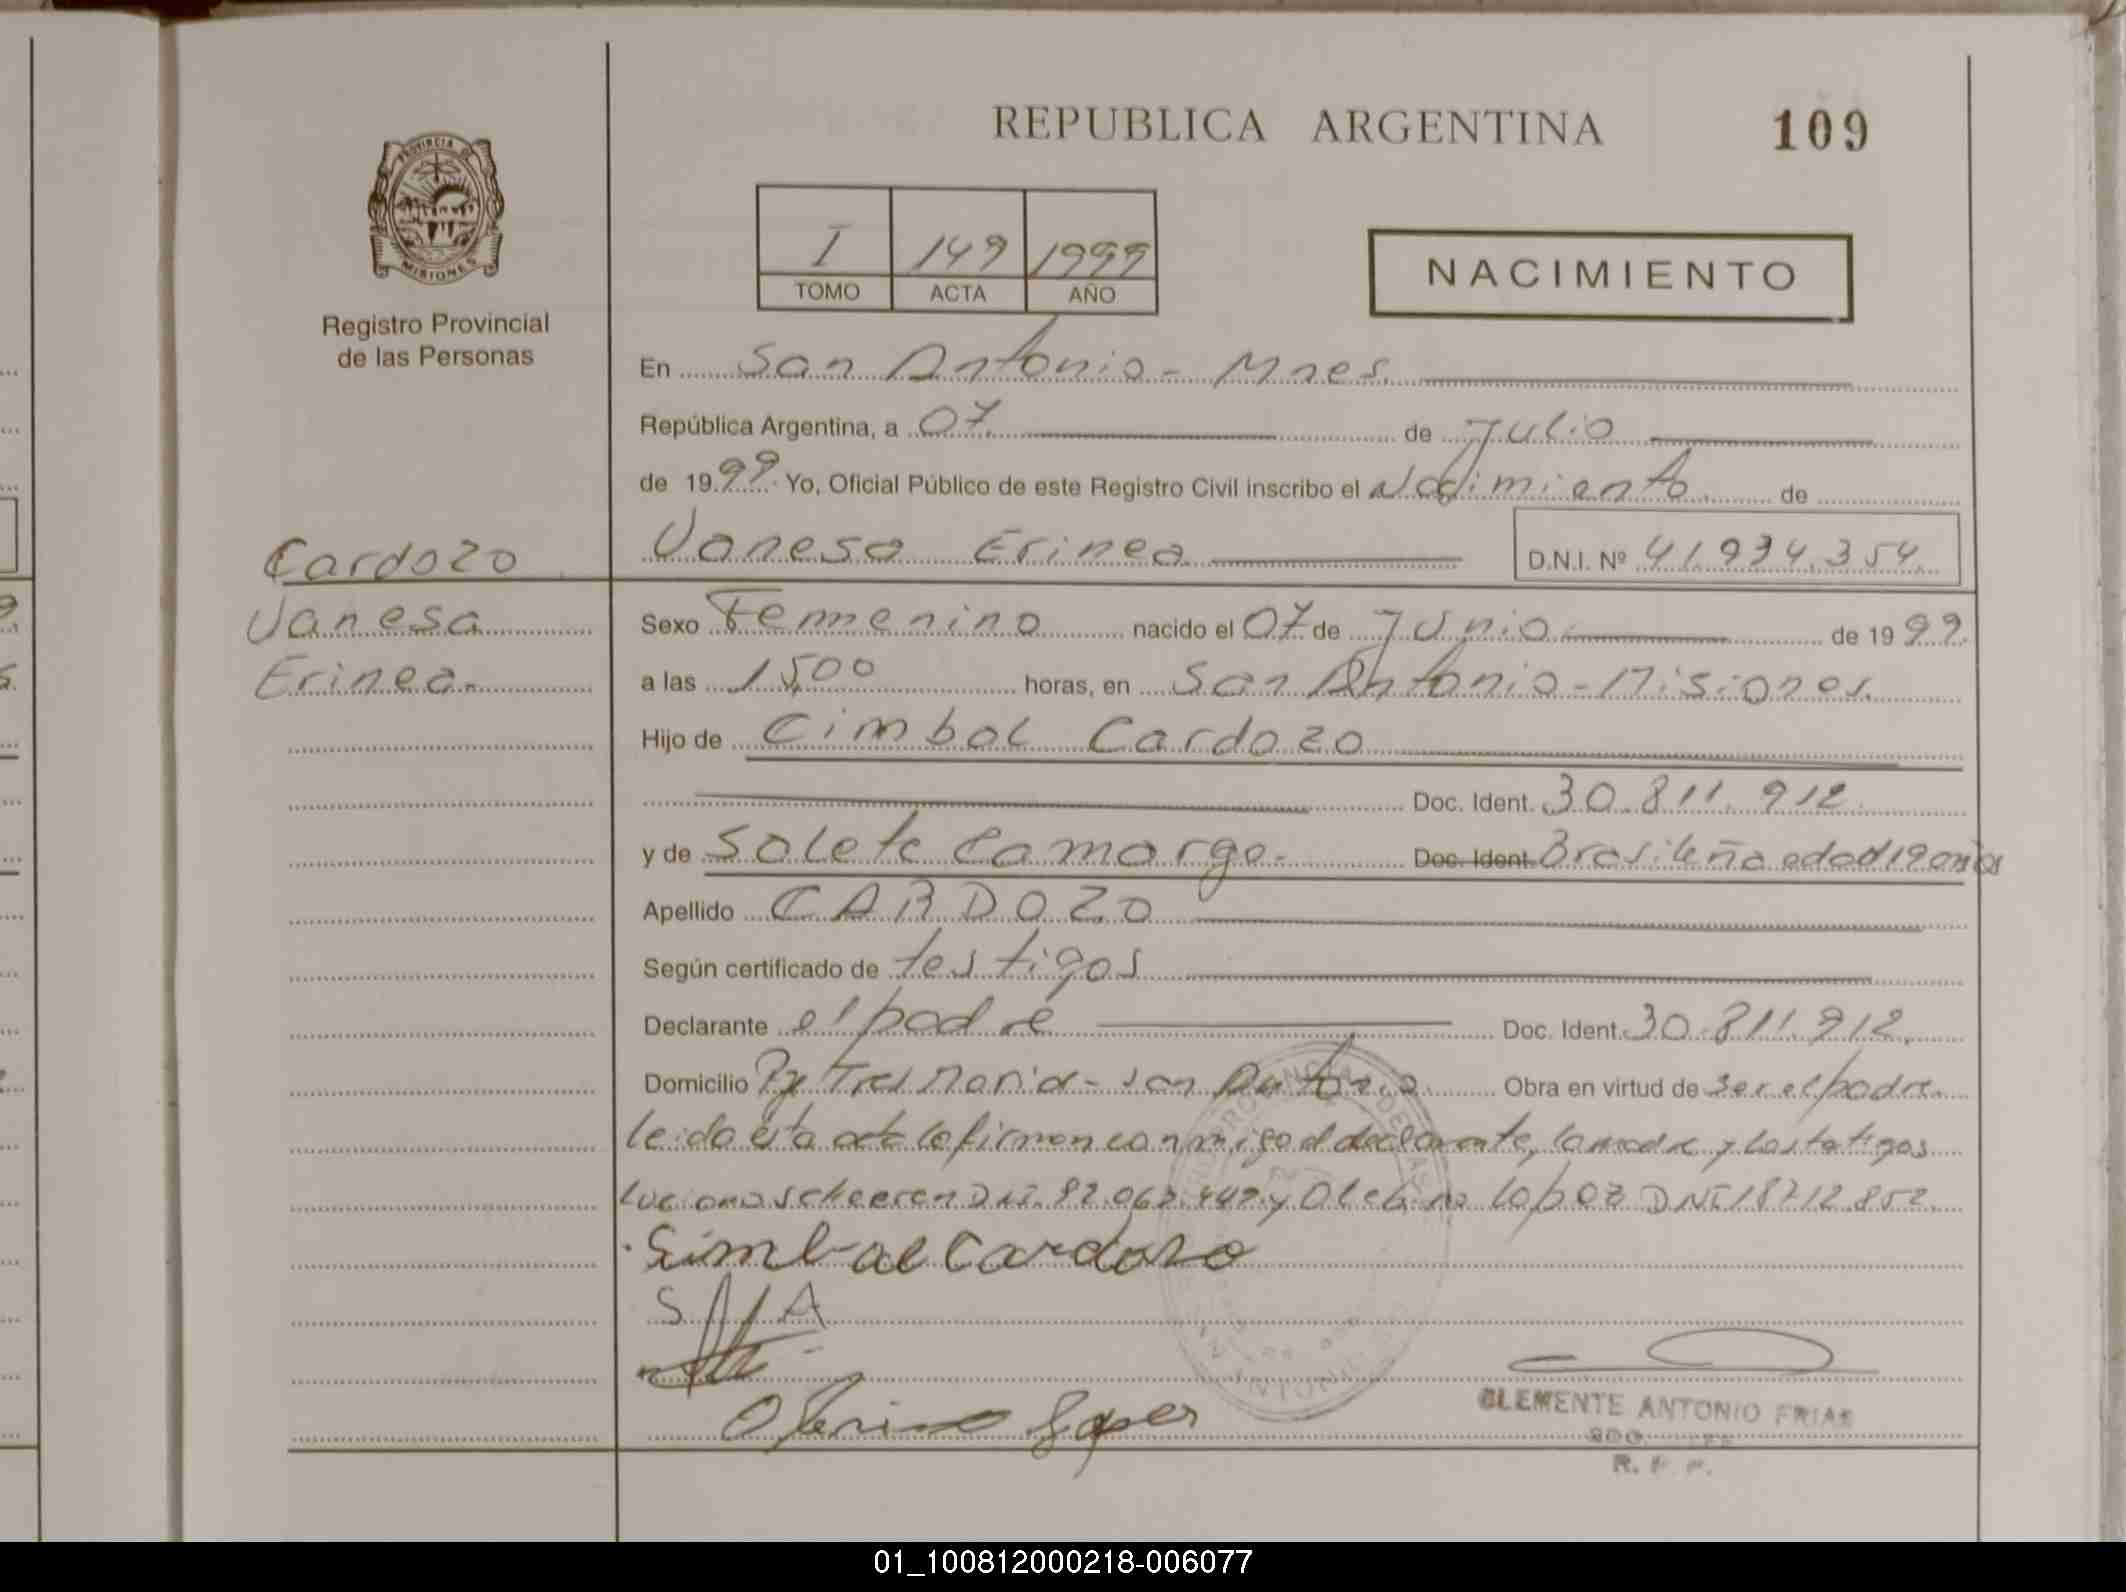 REPUBLICA ARGENTINA
109
PROVINCIA DE
MISIONES
Registro Provincial
de las Personas
I 149 1999
TOMO ACTA AÑO
NACIMIENTO
En San Antonio - Mnes.
República Argentina, a 07 de Julio
de 1999 Yo, Oficial Público de este Registro Civil inscribo el Nacimiento de
Vanesa Erinea D.N.I. Nº 41.934.354.
Cardozo
Vanesa
Erinea.
Sexo Femenino nacido el 07 de Junio de 1999
a las 15,00 horas, en San Antonio - Misiones.
Hijo de Cimbal Cardozo
Doc. Ident. 30.811.912.
y de Solete Camargo. Doc. Ident. Brasileña edad 19 años
Apellido CARDOZO
Según certificado de testigos
Declarante el padre Doc. Ident. 30.811.912.
Domicilio Pje Tres Maria - San Antonio Obra en virtud de ser el padre.
Leida esta acta la firman conmigo el declarante, la madre y los testigos
Luciano Scheeren DNI. 92.062.442 y Olebino Lopez DNI 18712.852.
Simbal Cardozo
S A
Lopes
CLEMENTE ANTONIO FRIAS
R. P. P.
01_100812000218-006077